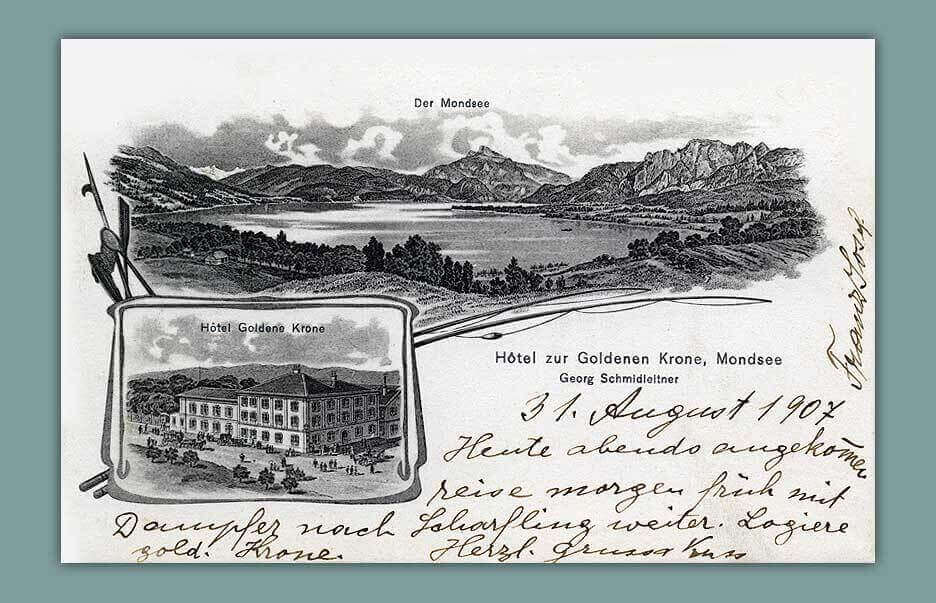 Der Mondsee
Hôtel Goldene Krone
Hôtel zur Goldenen Krone, Mondsee
Georg Schmidleitner
31. August 1907
Heute abends angekom̄en
reise morgen früh mit
Dampfer nach Scharfling weiter. Logiere
gold. Krone. Herzl. Gruss Kuss
Franz Josef